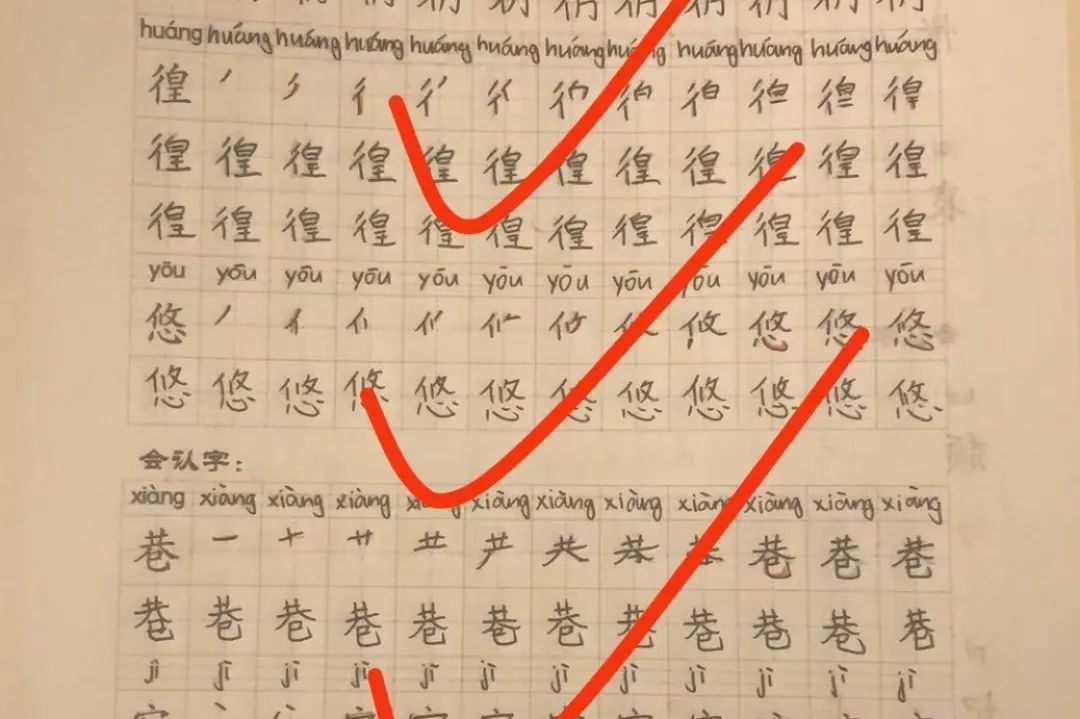 huáng huáng huáng huáng huáng huáng huáng huáng huáng huáng huáng huáng
徨
徨 徨 徨 徨 徨 徨 徨 徨 徨 徨 徨 徨
徨 徨 徨 徨 徨 徨 徨 徨 徨 徨 徨 徨
yōu yōu yōu yōu yōu yōu yōu yōu yōu yōu yōu yōu
悠 丿 亻 攸 悠 悠 悠
悠 悠 悠 悠 悠 悠 悠 悠 悠 悠 悠 悠
会认字:
xiàng xiàng xiàng xiàng xiāng xiàng xiàng xiāng xiāng xiāng xiāng
巷 一 十 艹 龷 共 巷 巷 巷
巷 巷 巷 巷 巷 巷 巷 巷 巷 巷 巷 巷
jì jì jì jì jì jì jì jì jì jì jì jì